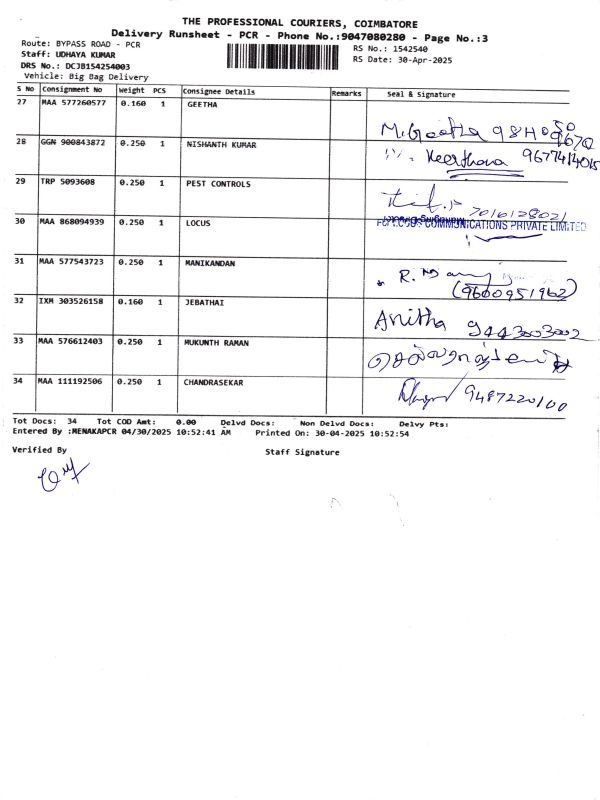 THE PROFESSIONAL COURIERS, COIMBATORE
Delivery Runsheet - PCR - Phone No.:9047080280 - Page No.:3
Route: BYPASS ROAD - PCR
RS No.: 1542540
Staff: UDHAYA KUMAR
RS Date: 30-Apr-2025
DRS No.: DCJB154254003
Vehicle: Big Bag Delivery
S No Consignment No Weight PCS Consignee Details Remarks Seal & Signature
27 MAA 577260577 0.160 1 GEETHA
M. Geetha
28 GGN 900843872 0.250 1 NISHANTH KUMAR
Keerthana 9677414015
29 TRP 5093608 0.250 1 PEST CONTROLS
7016128021
30 MAA 868094939 0.250 1 LOCUS
COMMUNICATIONS PRIVATE LIMITED
31 MAA 577543723 0.250 1 MANIKANDAN
R.
(9600951962)
32 IXM 303526158 0.160 1 JEBATHAI
Anitha 9443003002
33 MAA 576612403 0.250 1 MUKUNTH RAMAN
34 MAA 111192506 0.250 1 CHANDRASEKAR
9487220100
Tot Docs: 34 Tot COD Amt: 0.00 Delvd Docs: Non Delvd Docs: Delvy Pts:
Entered By :MENAKAPCR 04/30/2025 10:52:41 AM Printed On: 30-04-2025 10:52:54
Verified By
Staff Signature